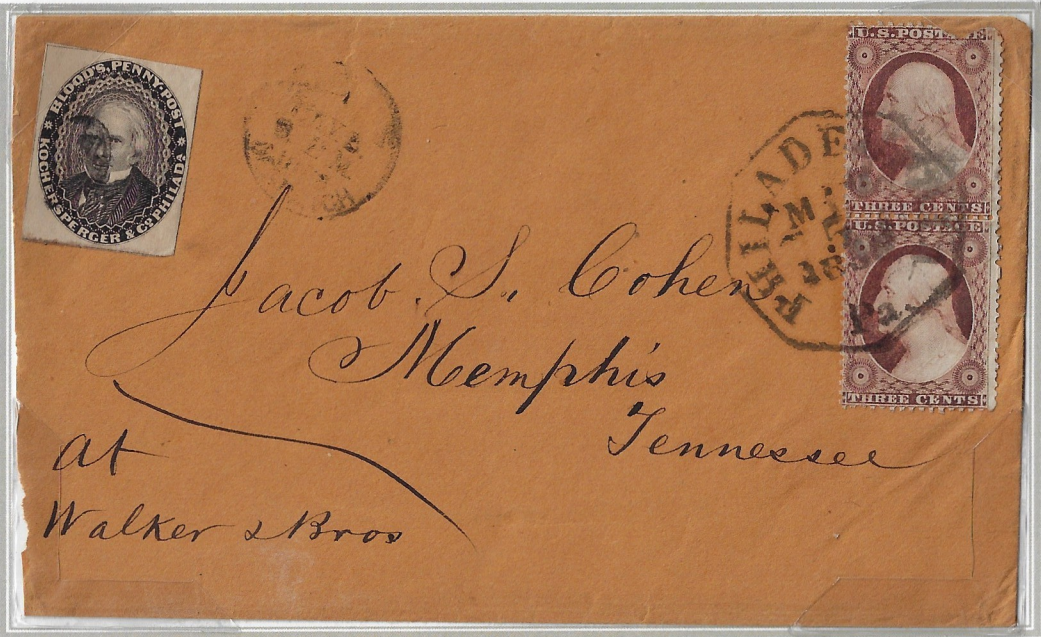 BLOOD'S, PENNY-POST
KOCHERSPERGER & Co PHILADA.
U.S. POSTAGE
THREE CENTS
U.S. POSTAGE
THREE CENTS
Pa.
Jacob. S. Cohen
Memphis
Tennessee
at
Walker & Bros